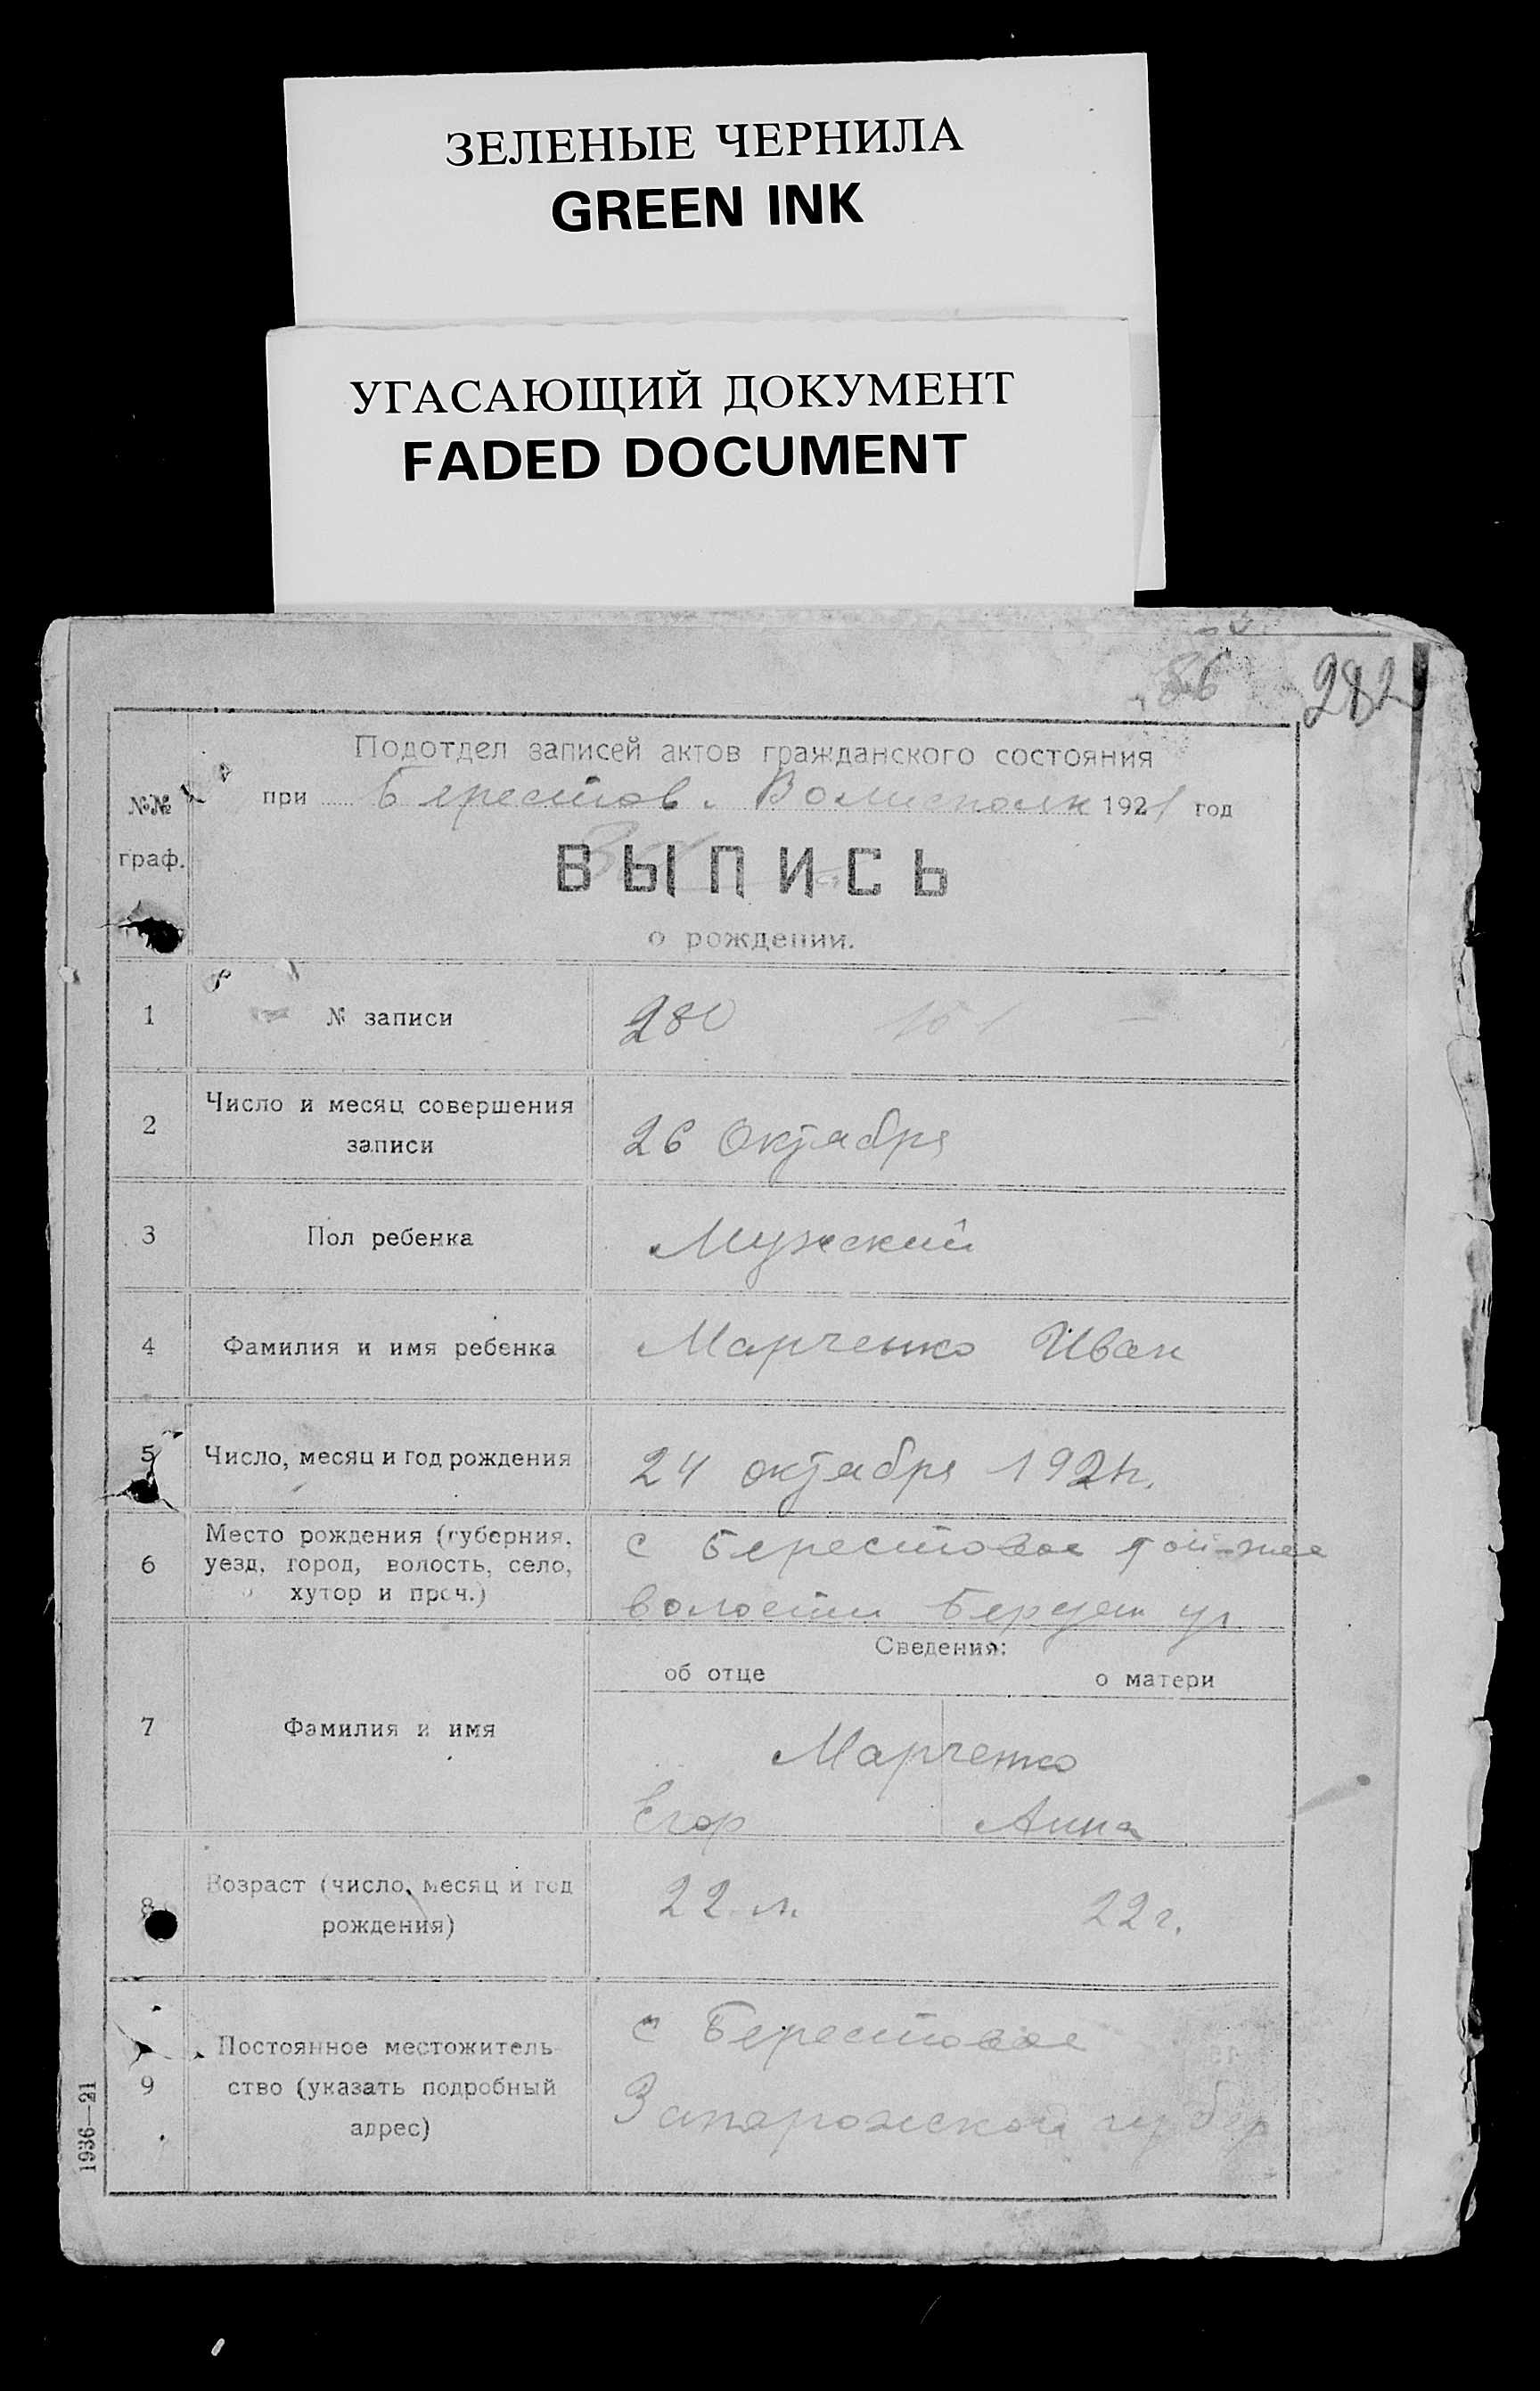 ЗЕЛЕНЫЕ ЧЕРНИЛА
GREEN INK
УГАСАЮЩИЙ ДОКУМЕНТ
FADED DOCUMENT
86
282
Подотдел записей актов гражданского состояния
при Берестов. Волисполк 1921 год
№№
граф.
ВЫПИСЬ
о рождении.
1 № записи 280
2 Число и месяц совершения
записи
26 Октября
3 Пол ребенка Мужский
4 Фамилия и имя ребенка Марченко Иван
5 Число, месяц и год рождения 24 октября 1921г.
6 Место рождения (губерния,
уезд, город, волость, село,
хутор и проч.)
с Берестовое той-же
волости Бердян у.
Сведения:
об отце о матери
7 Фамилия и имя
Марченко
Егор Анна
8 Возраст (число, месяц и год
рождения)
22 л. 22 г.
9 Постоянное местожитель-
ство (указать подробный
адрес)
с Берестовое
Запорожской губер
1936—21